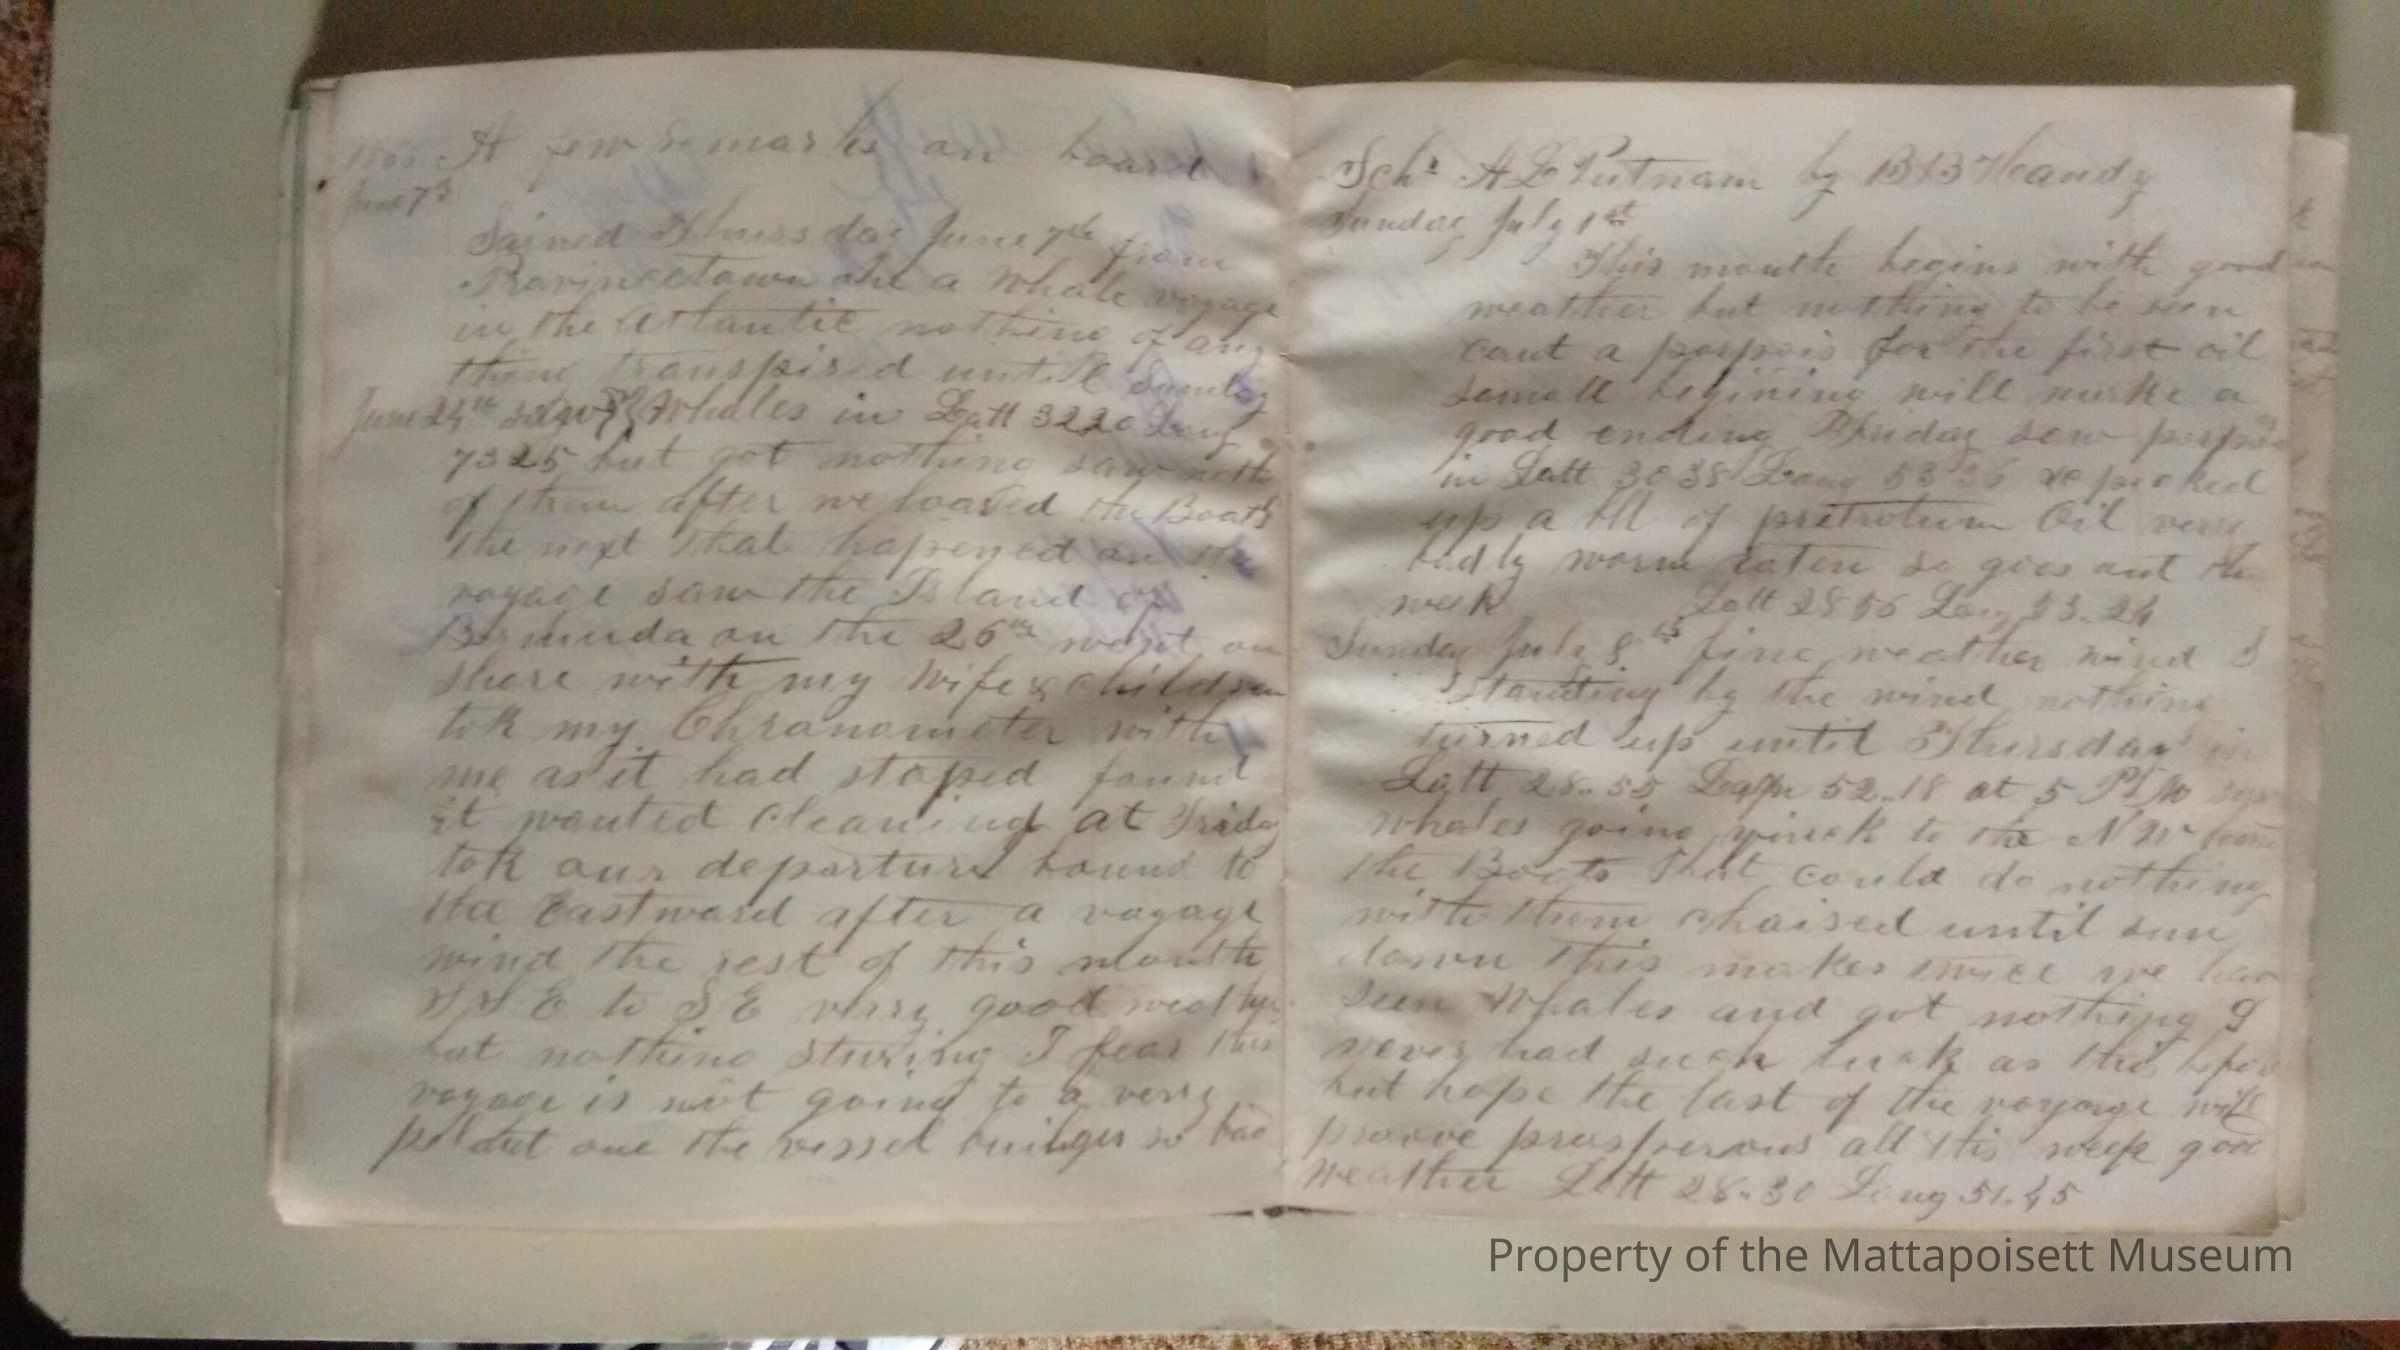 A few remarks on board
June 7th
Sained Thursday June 7th from
Provincetown on a Whale voyage
in the Atlantic nothing of any
thing transpired untill Sunday
June 24th saw Whales in Latt 3220 Long
7325 but got nothing saw noth
of them after we loared the Boats
the next that hapened on the
voyage saw the Island of
Bermuda on the 26th went on
shore with my Wife & children
tok my Chronometer with
me as it had stoped found
it wanted cleaning at Friday
tok our departure bound to
the Eastward after a voyage
wind the rest of this month
SSE to SE very good weather
but nothing sturing I fear this
voyage is not going to a very
one the vessel so bad
Schr A L Putnam by B B Handy
Sunday July 1st
This month begins with good
weather but nothing to be seen
caut a porpois for the first oil
somall begining will make a
good ending Friday saw
in Latt 3038 Long 5336 we picked
up a bbl of pretrolium Oil very
badly worm eaten so goes out the
week Latt 2856 Long 53.24
Sunday July 8th fine weather wind S
standing by the wind nothing
turned up until Thursday in
Latt 28..55 52..18 at 5 PM saw
whales going quick to the NW
the Boats that could do nothing
with them chaised until sun
down this makes twice we hav
seen Whales and got nothing I
never had such luck as this befor
but hope the last of the voyage will
proove prosperous all this week good
weather Latt 28.30 Long 51.45
Property of the Mattapoisett Museum